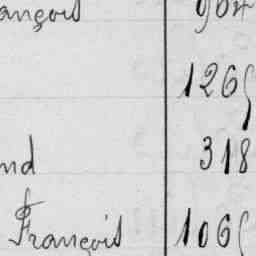 ançois 964
1265
nd 318
François 1065